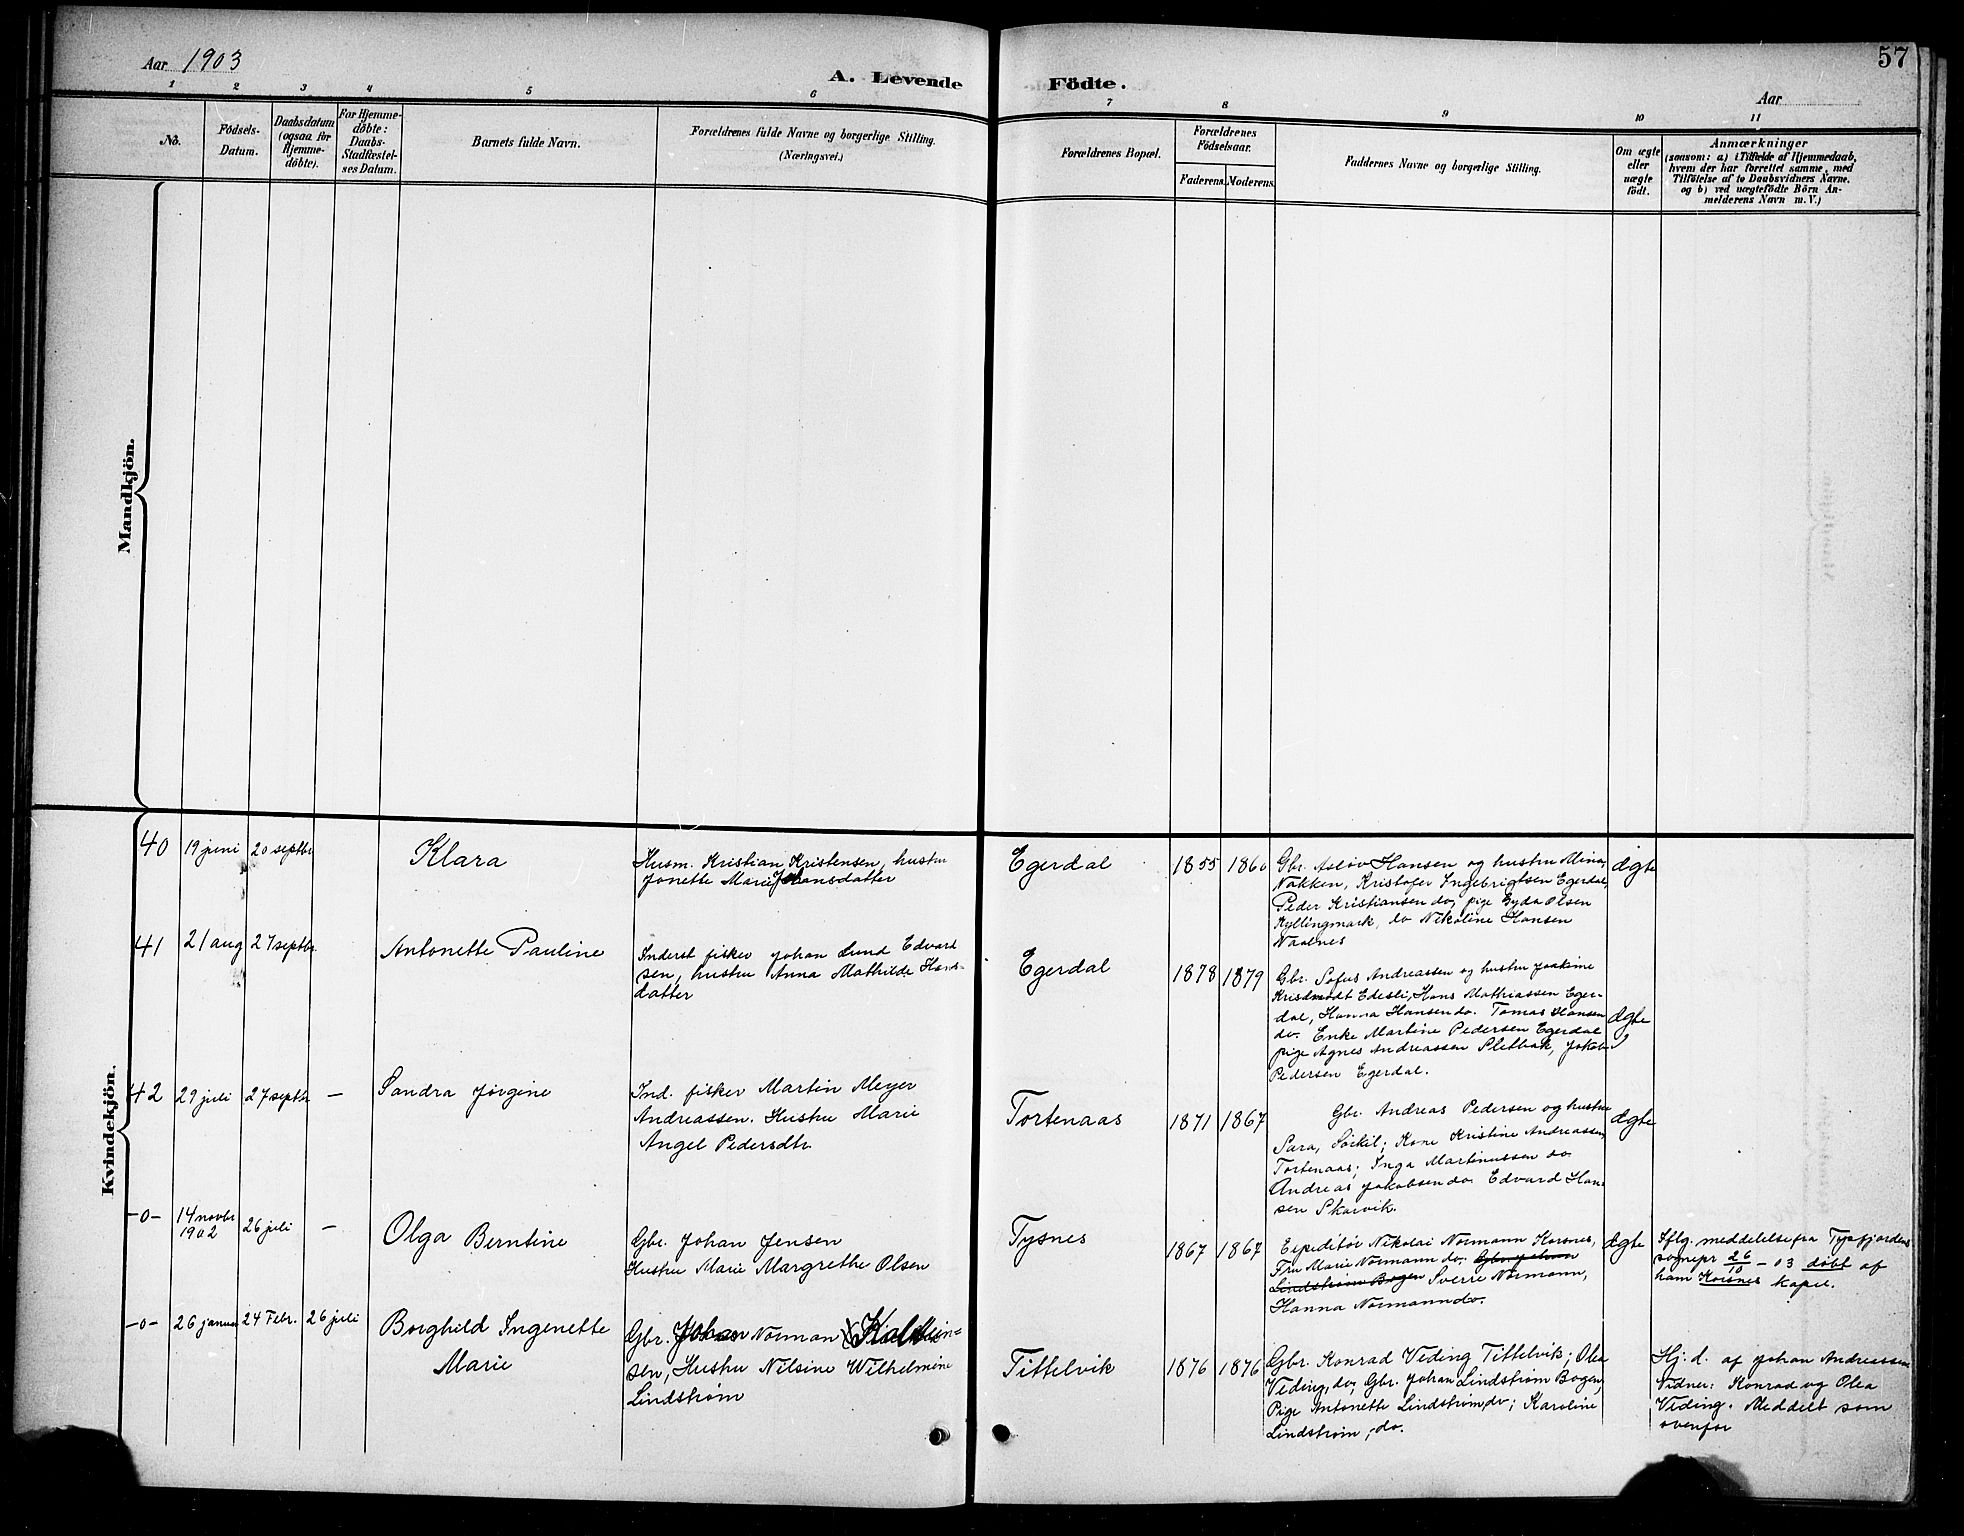 57
Aar 1903
A. Levende Födte.
Aar
1 2 3 4 5 6 7 8 9 10 11
No.
Födsels-
Datum.
Daabsdatum
(ogsaa for
Hjemme-
döbte).
For Hjemme-
döbte:
Daabs-
Stadfæstel-
ses Datum.
Barnets fulde Navn.
Forældrenes fulde Navne og borgerlige Stilling.
(Næringsvei.)
Forældrenes Bopæl.
Forældrenes
Födselsaar.
Faderens. Moderens.
Faddernes Navne og borgerlige Stilling.
Om ægte
eller
uægte
födt.
Anmærkninger
(saasom: a) i Tilfælde af Hjemmedaab,
hvem der har forrettet samme, med
Tilföielse af to Daabsvidners Navne,
og b) ved uægtefödte Börn An-
melderens Navn m. V.)
Mandkjön.
Kvindekjön.
40
19 juni
20 septbr
Klara
Husm. Kristian Kristensen, hustru
Jonette Marie Johansdatter
Egerdal
1855
1860
Gbr. Hansen og hustru Mina
Nakken, Kristofer Ingebrigtsen Egerdal,
Peder Kristiansen do, pige Gyda Olsen
Kyllingmark, do Nikoline Hansen
ægte
41
21 aug
27 septbr
Antonette Pauline
Inderst fisker Johan Lund Edvard
sen, hustru Anna Mathilde Hans-
datter
Egerdal
1878
1879
Gbr. Sofus Andreassen og hustru Joakime
Edesli, Hans Mathiassen Eger-
dal, Hanna Hansen do. Tomas Hansen
do. Enke Martine Pedersen Egerdal
pige Agnes Andreassen Sletbak, Jakob
Pedersen Egerdal.
ægte
42
29 juli
27 septbr
—
Sandra Jørgine
Ind. fisker Martin Meyer
Andreassen. Hustru Marie
Angel Pedersdtr
Tortenaas
1871
1867
Gbr. Andreas Pedersen og hustru
Sara, Sørkil; Kone Kristine Andreassen
Tortenaas; Inga Martinussen do
Andreas Jakobsen do. Edvard Han-
sen Skarvik.
ægte
-0-
14 novbr
1902
26 juli
—
Olga Berntine
Gbr. Johan Jensen
Hustru Marie Margrethe Olsen
Tysnes
1867
1867
Expeditør Nikolai Normann Korsnes,
Fru Marie Normann do. Gbr. Johan
Lindstrøm Bogen Sverre Normann,
Hanna Normann do.
ægte
Iflg. meddelelse fra Tysfjordens
sognepr 26/10 - 03 døbt af
ham Korsnes kapel.
-0-
26 januar
24 Febr.
26 juli
Borghild Ingenette
Marie
Gbr. Johan Norman
sen, Hustru Nilsine Wilhelmine
Lindstrøm
Tittelvik
1876
1876
Gbr. Konrad Veding Tittelvik; Olea
Veding, do; Gbr. Johan Lindstrøm Bogen,
Pige Antonette Lindstrøm, do; Karoline
Lindstrøm, do.
Hj. d. af Johan Andreassen
Vidner: Konrad og Olea
Veding. Meddelt som
ovenfor